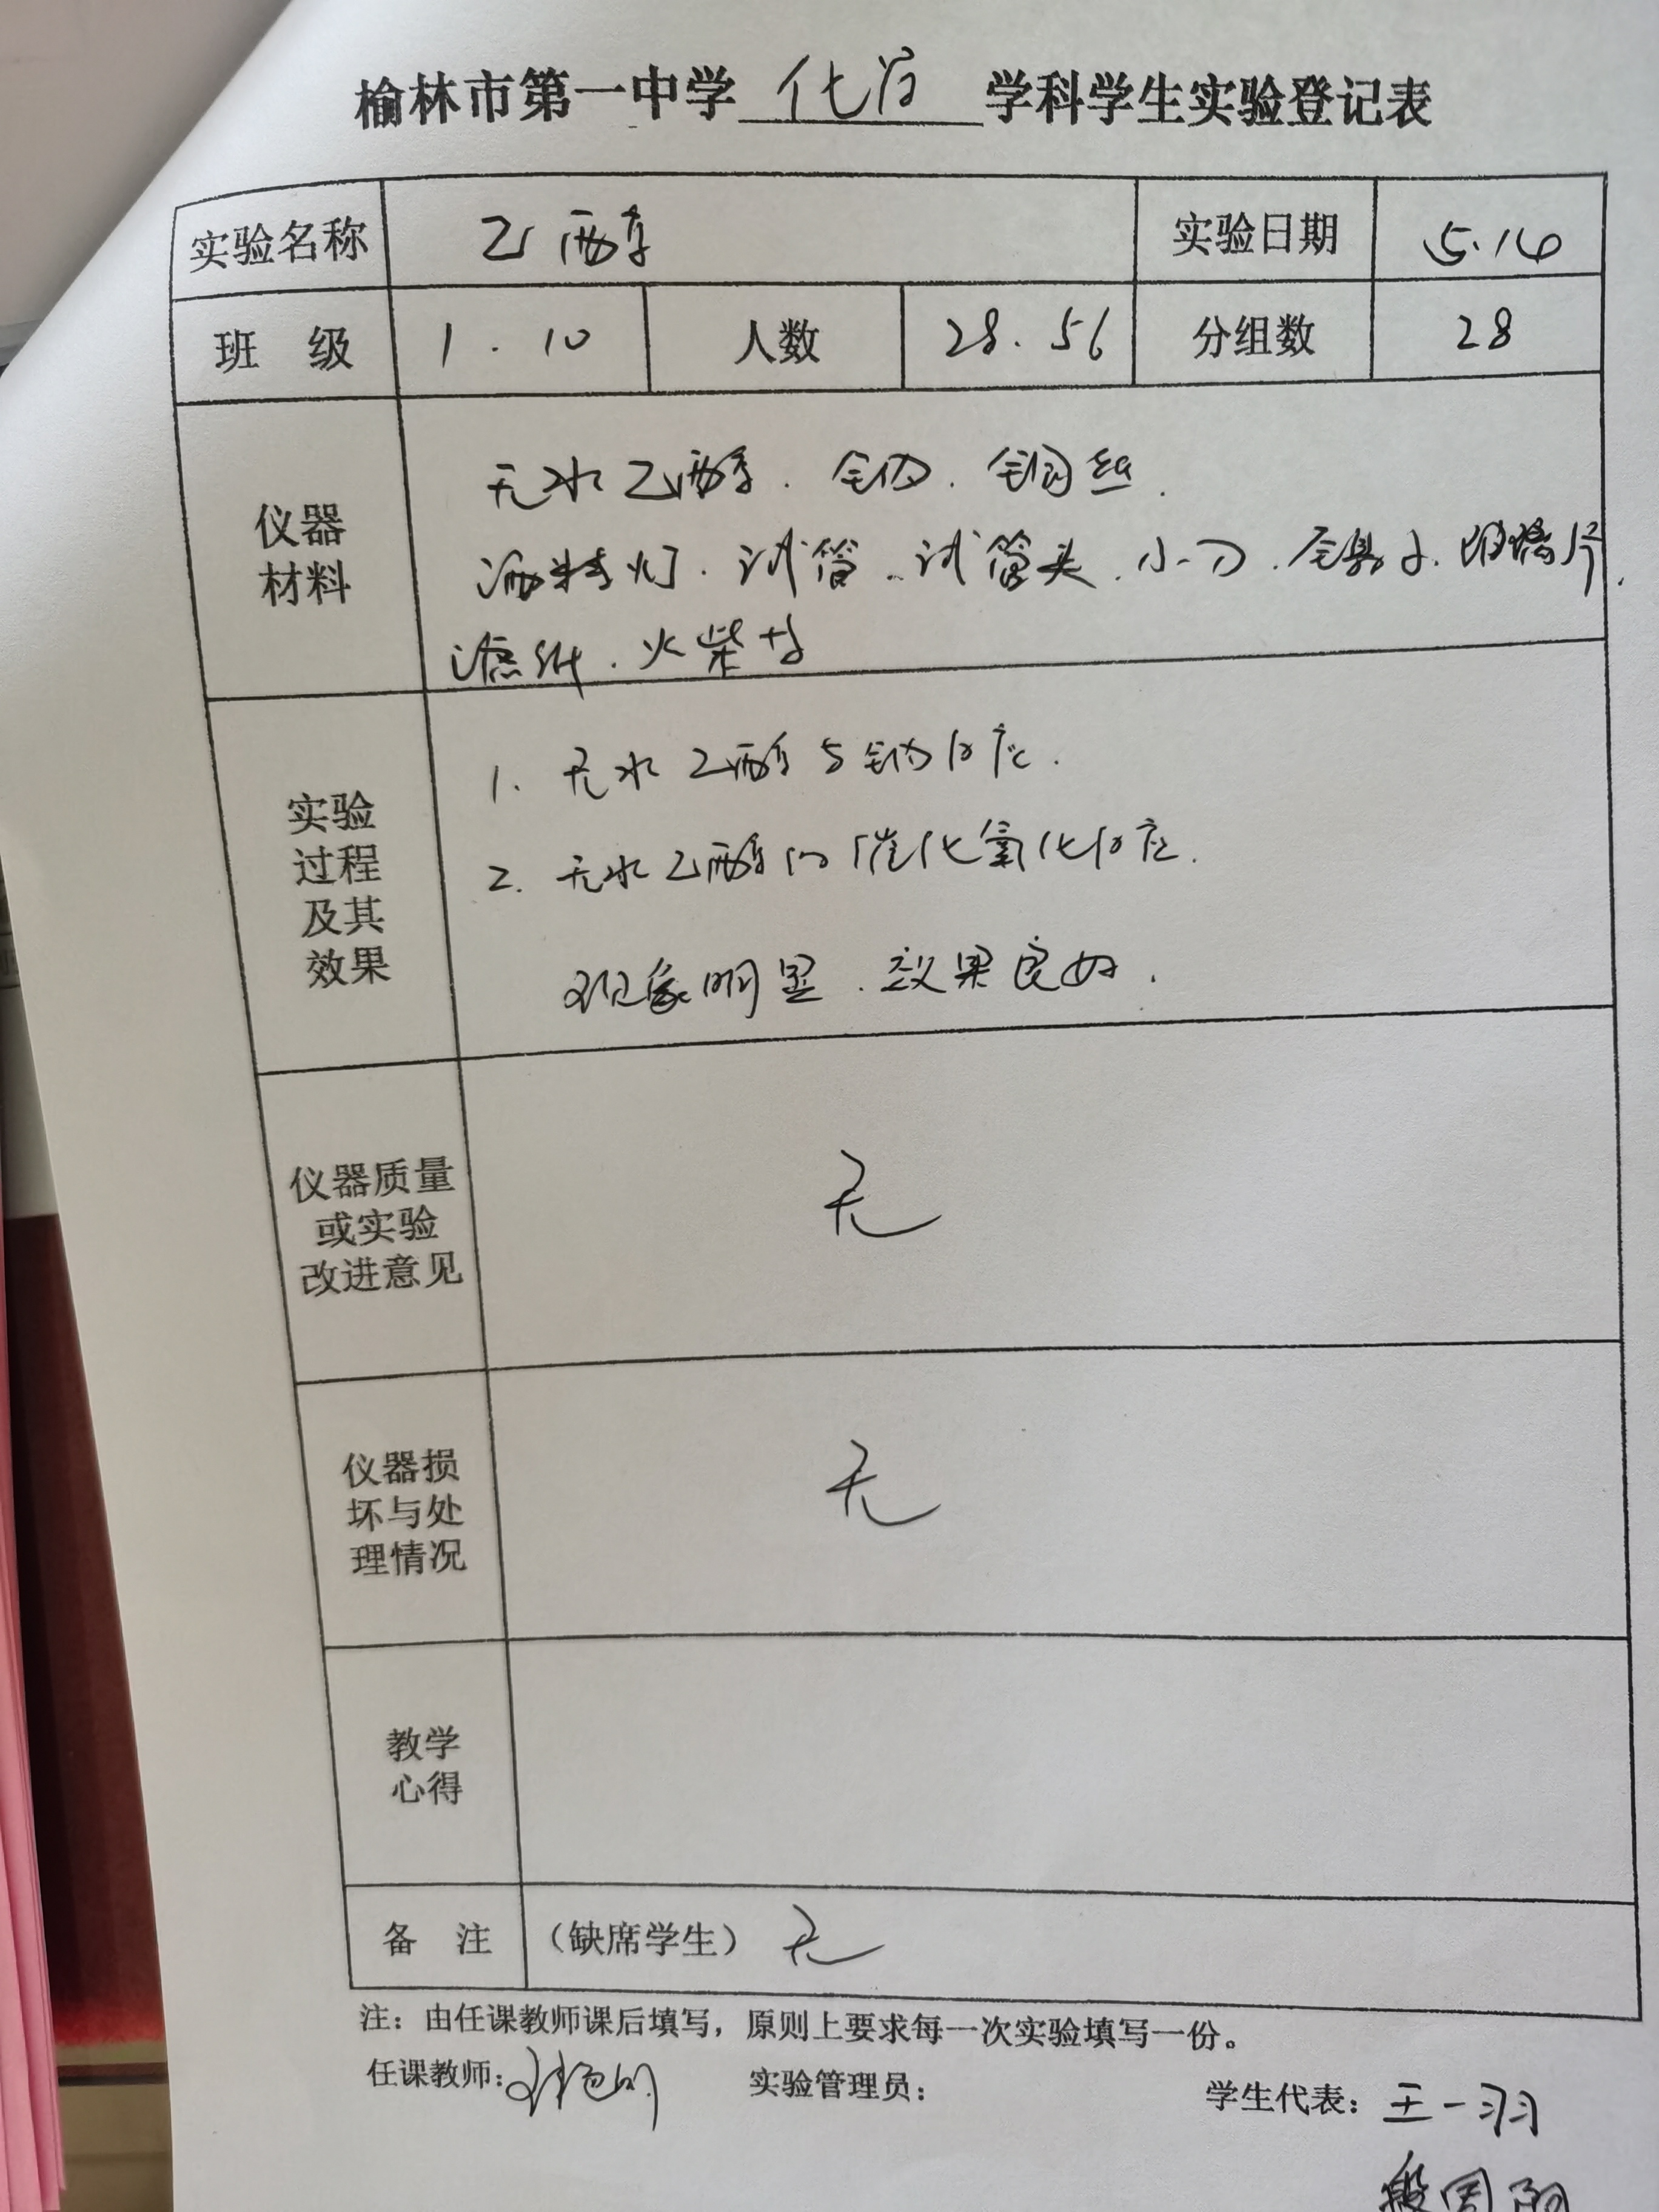 榆林市第一中学 化学 学科学生实验登记表
实验名称 乙醇 实验日期 5.14
班 级 1.10 人数 28.56 分组数 28
仪器
材料
无水乙醇.金属钠.铜丝.
酒精灯.试管.试管夹.小刀.镊子.玻璃片.
滤纸.火柴等
实验
过程
及其
效果
1. 无水乙醇与钠反应.
2. 无水乙醇的催化氧化反应.
现象明显.效果良好.
仪器质量
或实验
改进意见
无
仪器损
坏与处
理情况
无
教学
心得
备 注 （缺席学生） 无
注：由任课教师课后填写，原则上要求每一次实验填写一份。
任课教师： 实验管理员： 学生代表：王一羽